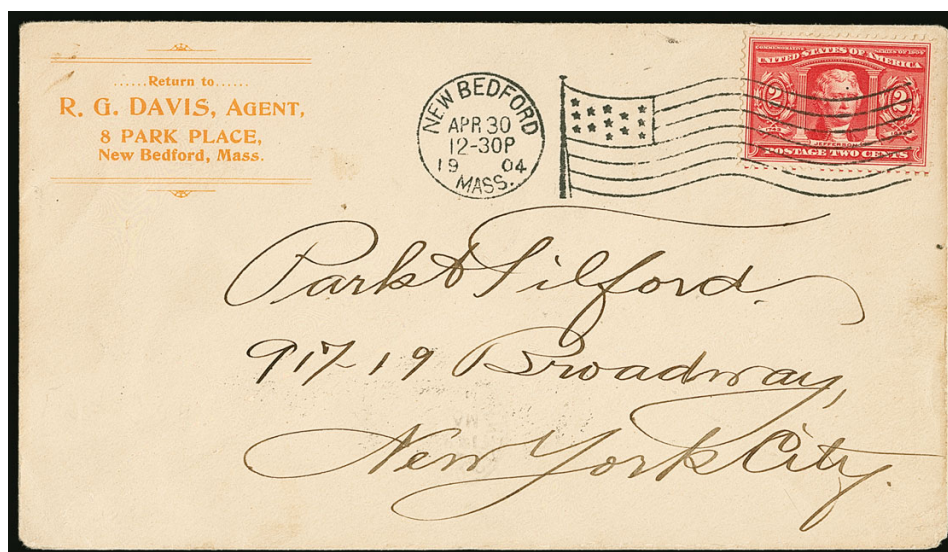 ......Return to......
R. G. DAVIS, AGENT,
8 PARK PLACE,
New Bedford, Mass.
NEW BEDFORD
APR 30
12-30P
19 04
MASS.
COMMEMORATIVE SERIES OF 1904
UNITED STATES OF AMERICA
2 2
JEFFERSON
POSTAGE TWO CENTS
Park & Tilford.
917-19 Broadway,
New York City.